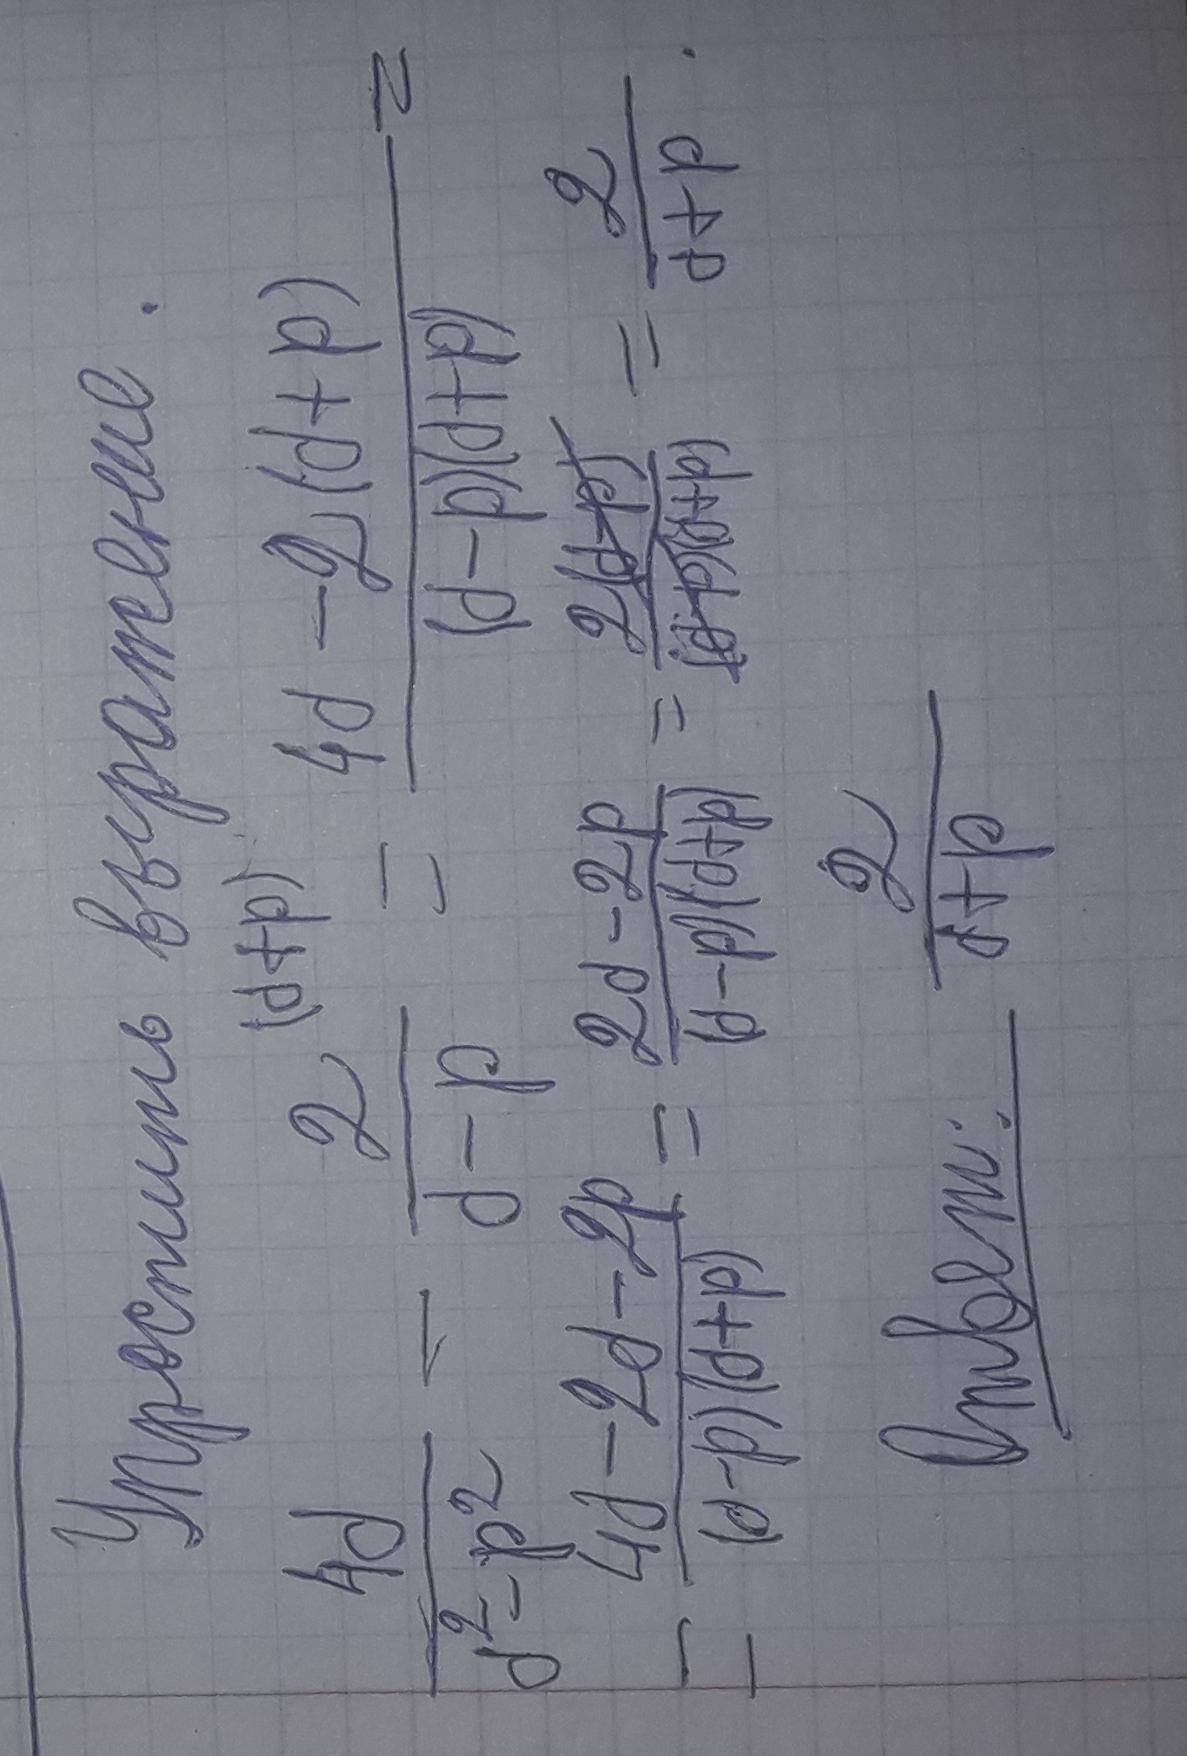 Упростить выражение.
4d/(d²-p²) - 2/(d-p) (d+p) = (4d - 2(d+p))/((d-p)(d+p)) =
= (4d-2d-2p)/((d-p)(d+p)) = (2d-2p)/((d-p)(d+p)) = 2(d-p)/((d-p)(d+p)) = 2/(d+p).
Ответ: 2/(d+p)